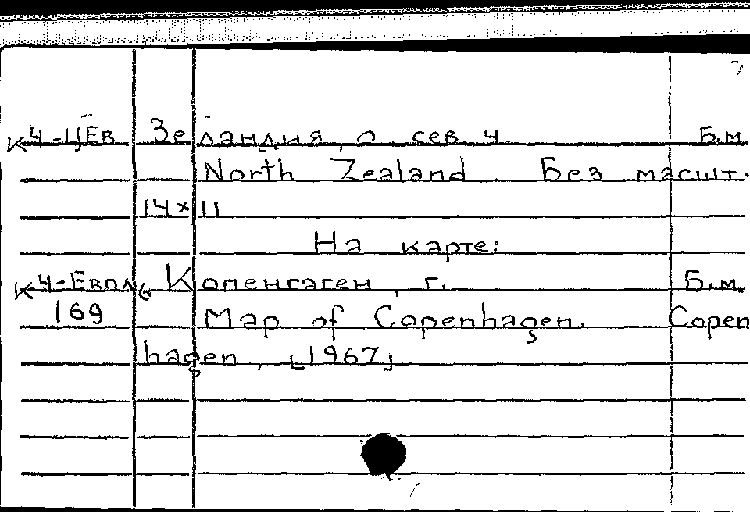 К4-ЦЕв Зеландия, о. сев. ч Б.м
North Zealand. Без масшт.
14×11
На карте:
К4-Европ Копенгаген, г. Б.м.
169 Map of Copenhagen. Copen
hagen, [1967]